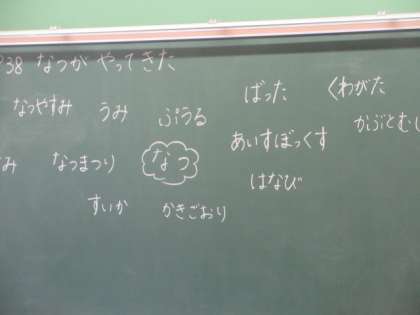 P38 なつが やってきた
なつやすみ うみ ぷうる ばった くわがた
かぶとむし
み なつまつり なつ あいすぼっくす
はなび
すいか かきごおり